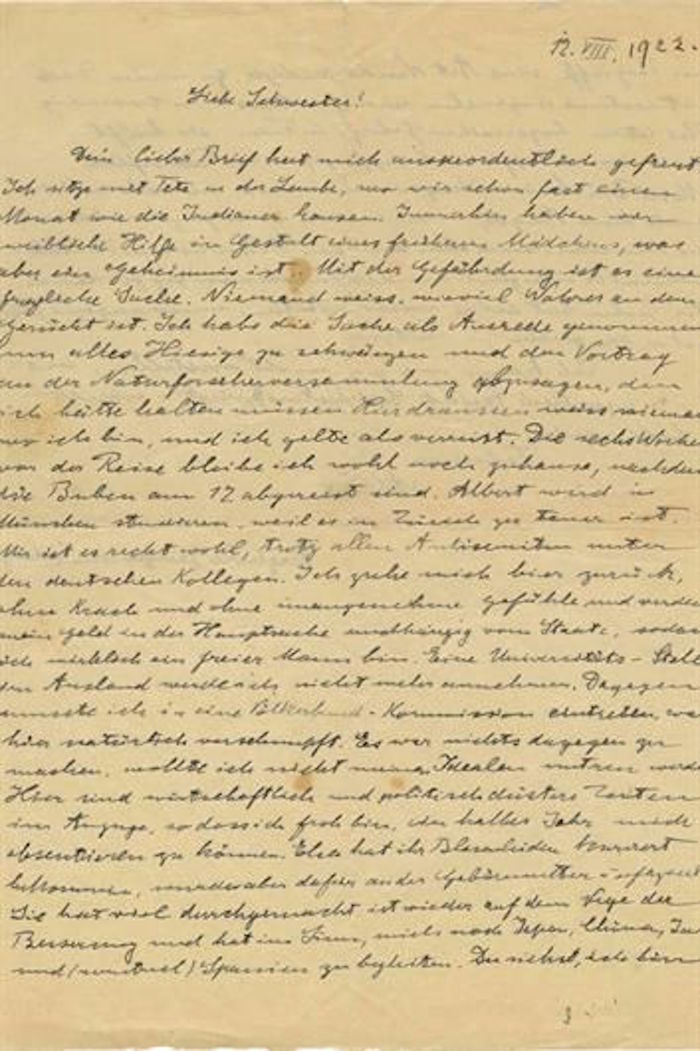 12. VIII. 1922.
Liebe Schwester!
Dein lieber Brief hat mich ausserordentlich gefreut
Ich sitze mit Tete in der Laube, wo wir schon fast einen
Monat wie die Indianer hausen. Immerhin haben wir
weibliche Hilfe in Gestalt eines früheren Mädchens, was
aber ein Geheimnis ist. Mit der Gefährdung ist es eine
fragliche Sache. Niemand weiss, wieviel Wahres an dem
Gerücht ist. Ich habe die Sache als Ausrede genommen
um alles Hiesige zu schwänzen und den Vortrag
an der Naturforscherversammlung abzusagen, den
ich hätte halten müssen. Hier draussen weiss nieman
wo ich bin, und ich gelte als verreist. Die sechs Woche
vor der Reise bleibe ich wohl noch zuhause, nachdem
die Buben am 12 abgereist sind. Albert wird in
München studieren, weil es in Zürich zu teuer ist.
Mir ist es recht wohl, trotz allen Antisemiten unter
den deutschen Kollegen. Ich ziehe mich hier zurück,
ohne Krach und ohne unangenehme Gefühle und verdie
mein Geld in der Hauptsache unabhängig vom Staate, sodass
ich wirklich ein freier Mann bin. Eine Universitäts-Stell
im Ausland werde ich nicht mehr annehmen. Dagegen
musste ich in eine Völkerbund-Kommission eintreten, was
hier natürlich verschnupft. Es war nichts dagegen zu
machen, wollte ich nicht meinen Idealen untreu werde
Hier sind wirtschaftlich und politisch düstere Zeiten
im Anzuge, sodass ich froh bin, ein halbes Jahr mich
absentieren zu können. Else hat ihr Blasenleiden
bekommen, dafür an der Gebärmutter
Sie hat viel durchgemacht ist wieder auf dem Wege der
Besserung und hat im Sinn, mich nach Japan, China, Ja
und (eventuel) Spanien zu begleiten. Du siehst, ich bin